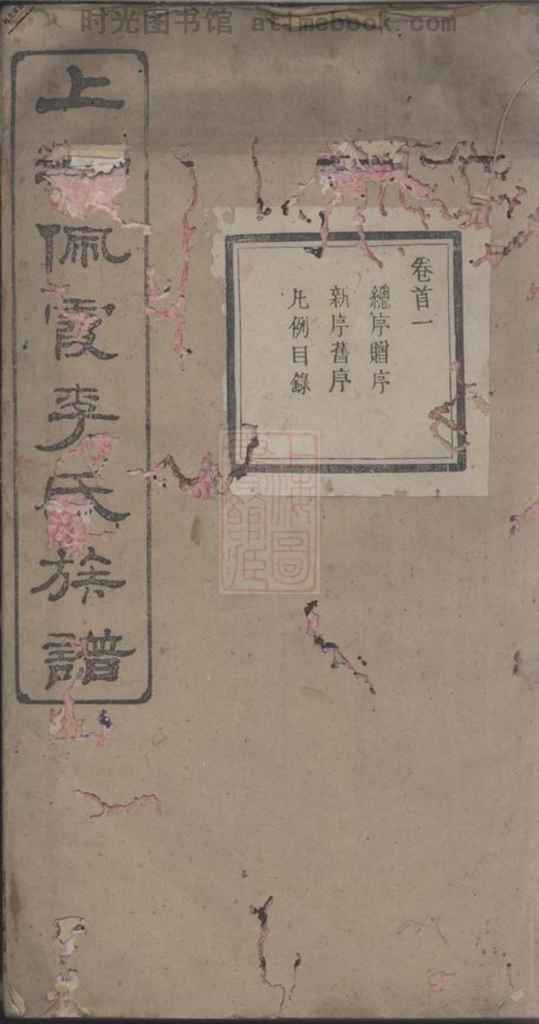 时光图书馆 atimebook.com
卷首一
總序贈序
新序舊序
凡例目錄
上 佩霞李氏族譜